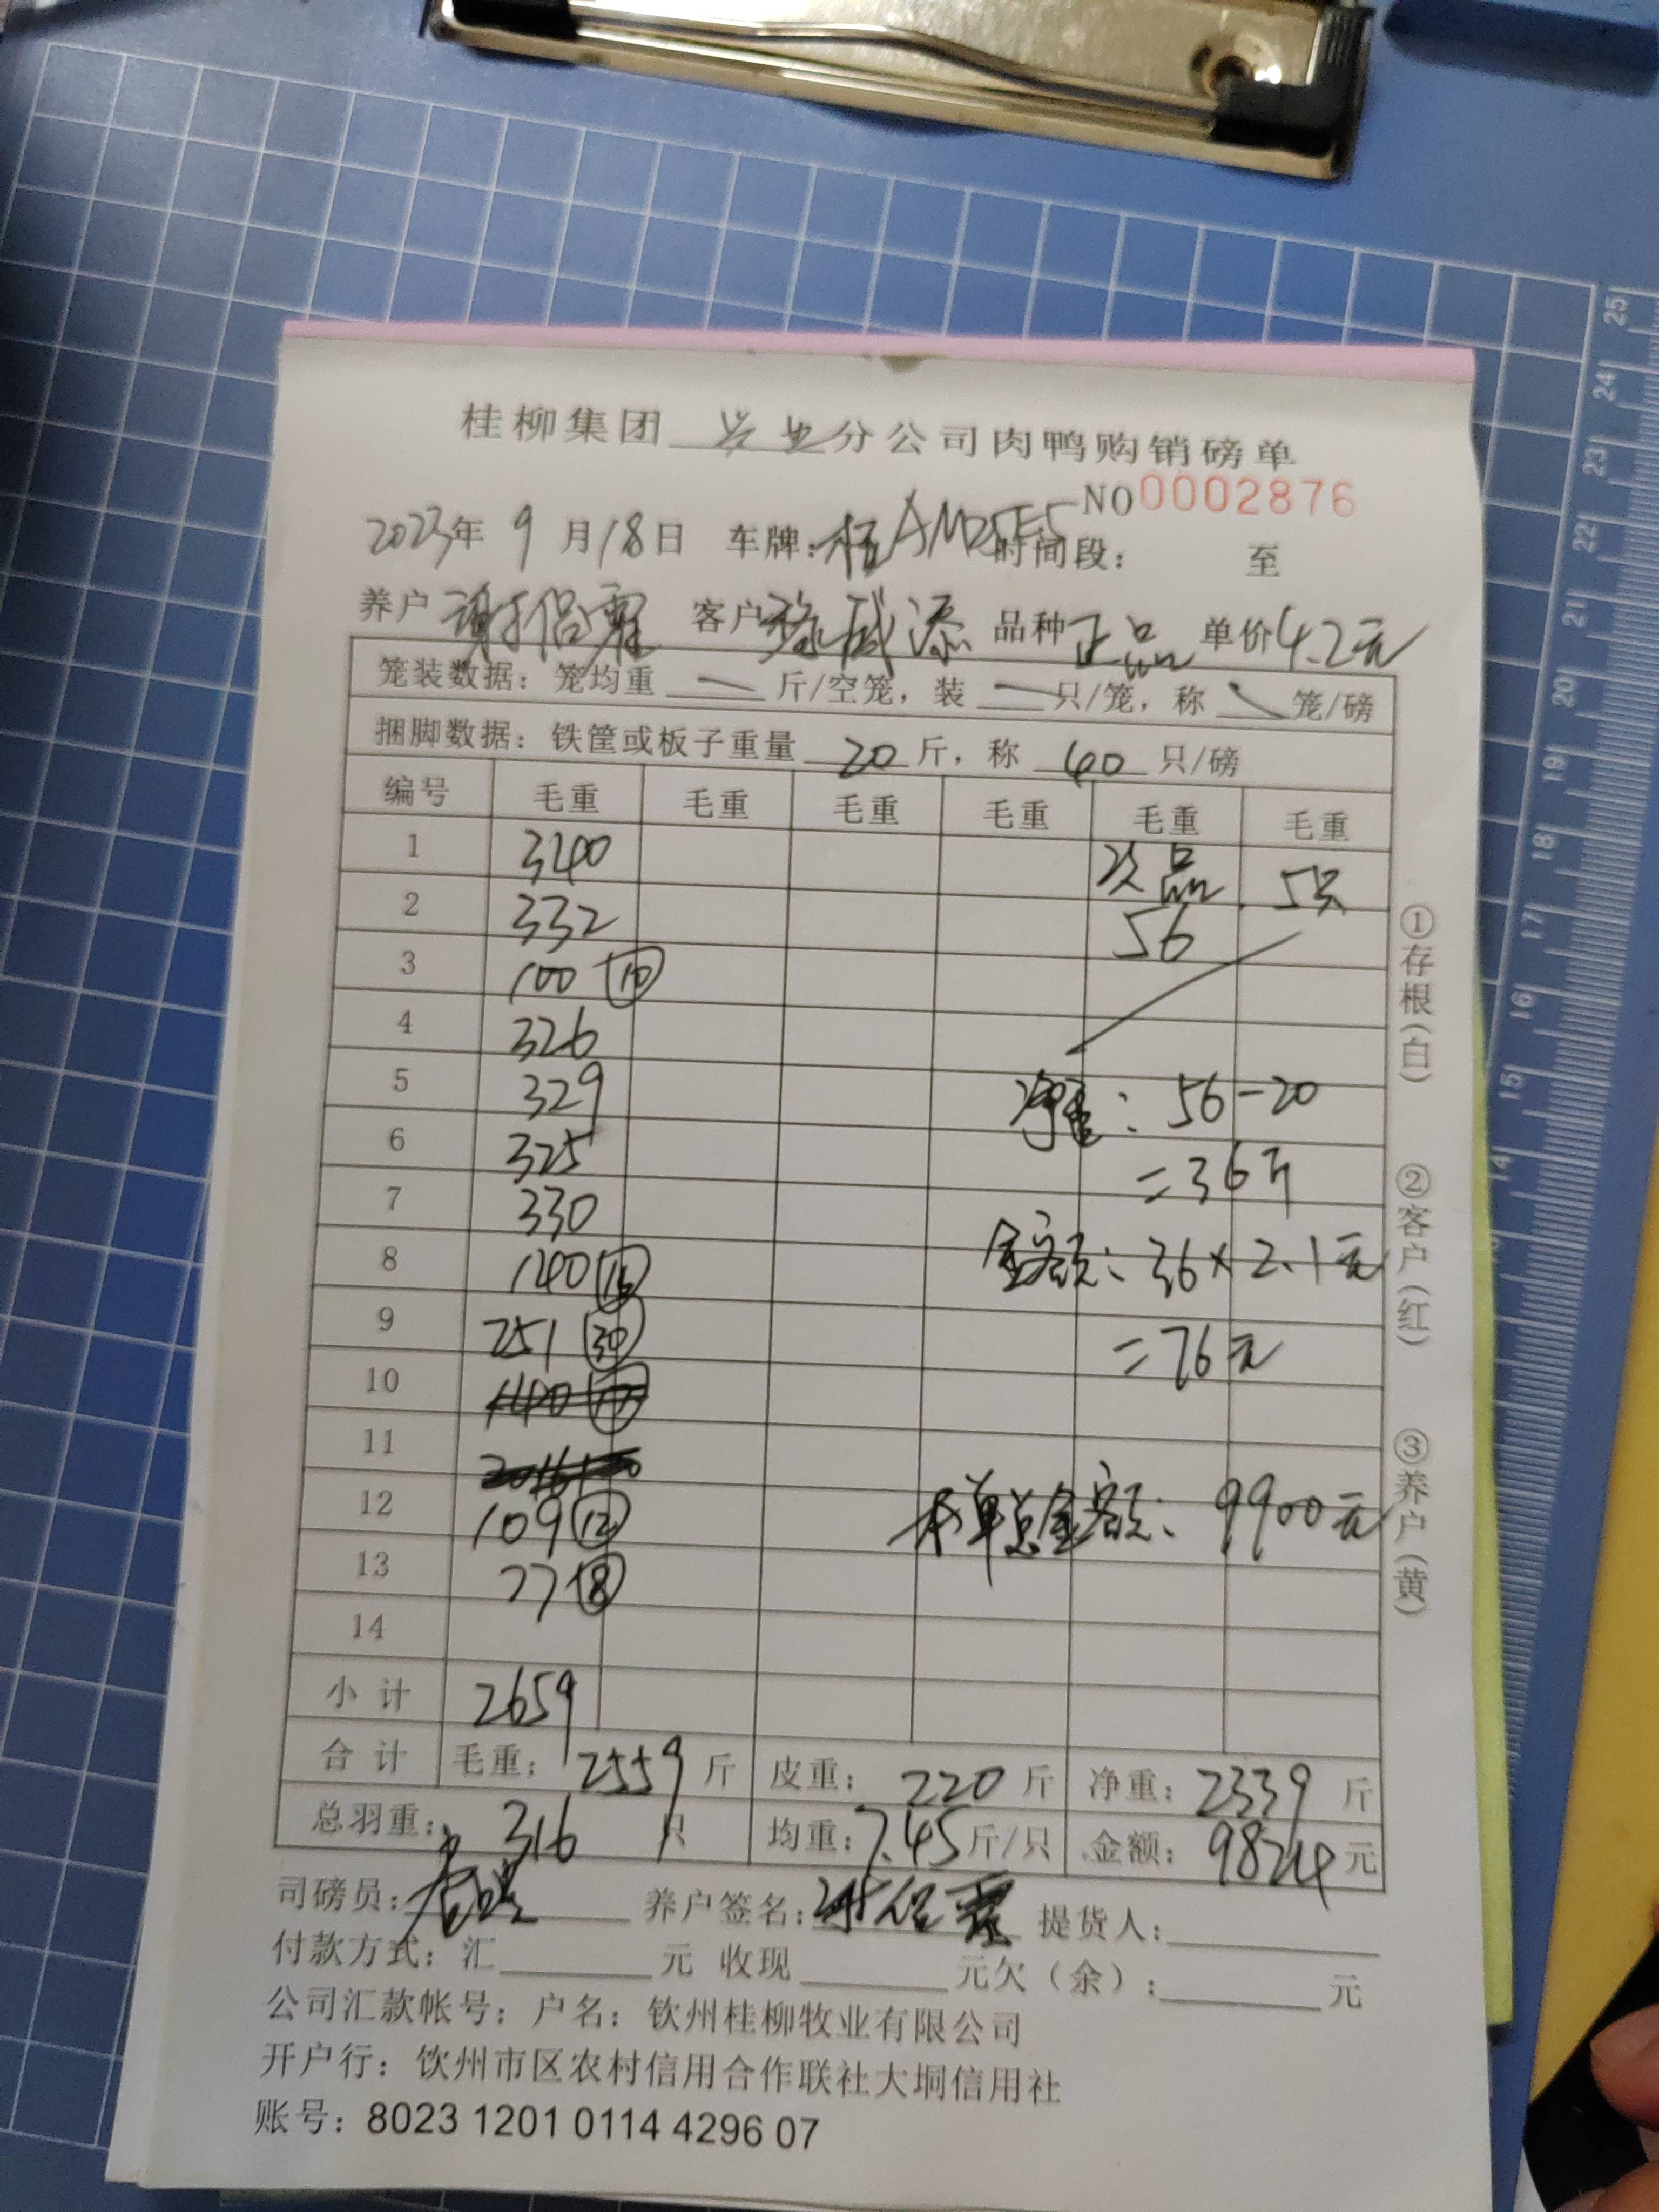 桂柳集团 兴业 分公司肉鸭购销磅单
NO 0002876
2023年 9 月 18 日 车牌: 桂AM25E5 时间段: 至
养户 谢绍 客户 添 品种 正品 单价 4.2元
笼装数据: 笼均重 — 斤/空笼, 装 — 只/笼, 称 — 笼/磅
捆脚数据: 铁筐或板子重量 20 斤, 称 40 只/磅
编号 毛重 毛重 毛重 毛重 毛重 毛重
1 340 次品 5只
2 332 56
3 100 ⑩
4 326
5 329 净重: 56-20
6 325 =36斤
7 330
8 140 金额: 36×2.1元
9 251 ㉚ =76元
10
11
12 109 ⑫ 本单总金额: 9900元
13 77 ⑧
14
小计 2659
合计 毛重: 2559 斤 皮重: 220 斤 净重: 2339 斤
总羽重: 316 只 均重: 7.45 斤/只 金额: 9824 元
司磅员: 养户签名: 提货人:
付款方式: 汇 元 收现 元欠(余): 元
公司汇款帐号; 户名: 钦州桂柳牧业有限公司
开户行: 饮州市区农村信用合作联社大垌信用社
账号: 8023 1201 0114 4296 07
①存根(白) ②客户(红) ③养户(黄)
14 15 16 17 18 19 20 21 22 23 24 25